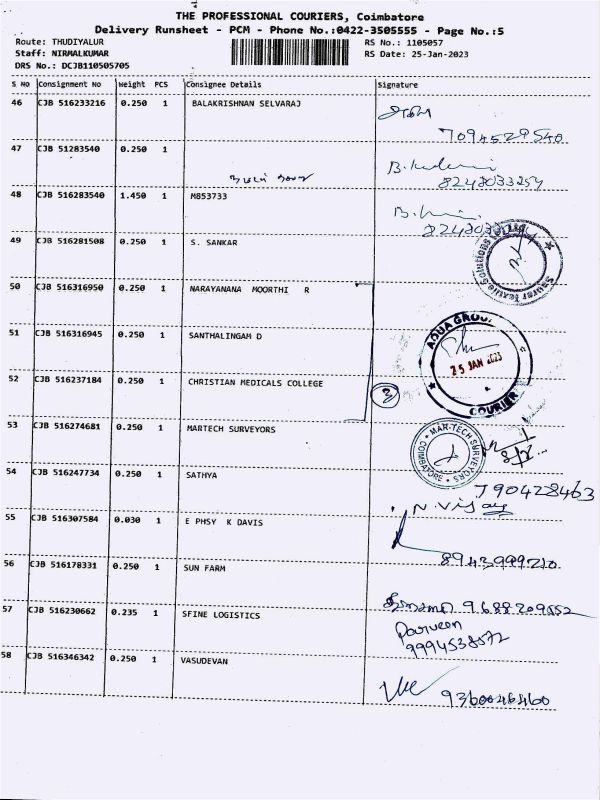 THE PROFESSIONAL COURIERS, Coimbatore
Delivery Runsheet - PCM - Phone No.:0422-3505555 - Page No.:5
Route: THUDIYALUR
RS No.: 1105057
Staff: NIRMALKUMAR
RS Date: 25-Jan-2023
DRS No.: DCJB110505705
S No Consignment No Weight PCS Consignee Details Signature
46 CJB 516233216 0.250 1 BALAKRISHNAN SELVARAJ
7094529540
47 CJB 51283540 0.250 1
8248033254
48 CJB 516283540 1.450 1 M853733
49 CJB 516281508 0.250 1 S. SANKAR
50 CJB 516316950 0.250 1 NARAYANANA MOORTHI R
51 CJB 516316945 0.250 1 SANTHALINGAM D
AQUA GROUP
25 JAN 2023
COURIER
52 CJB 516237184 0.250 1 CHRISTIAN MEDICALS COLLEGE
3
53 CJB 516274681 0.250 1 MARTECH SURVEYORS
MAR-TECH SURVEYORS
COIMBATORE
54 CJB 516247734 0.250 1 SATHYA
790428463
N. Vijay
55 CJB 516307584 0.030 1 E PHSY K DAVIS
8943999210
56 CJB 516178331 0.250 1 SUN FARM
9688209552
57 CJB 516230662 0.235 1 SFINE LOGISTICS
Parveen
9994538572
58 CJB 516346342 0.250 1 VASUDEVAN
9360046460